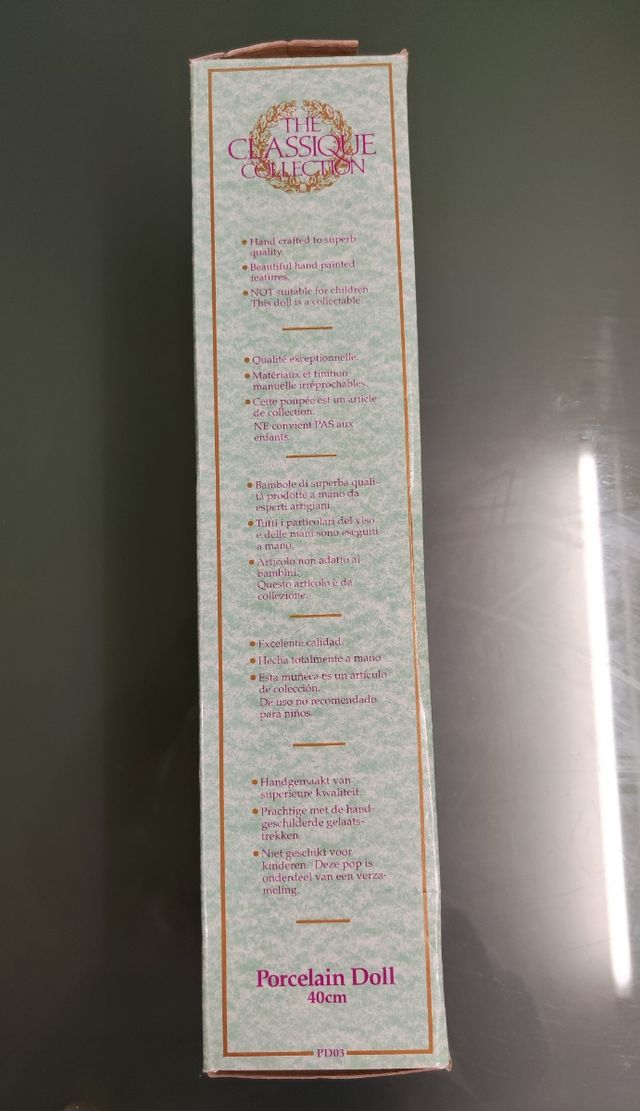 THE
CLASSIQUE
COLLECTION
• Hand crafted to superb
quality.
• Beautiful hand painted
features.
• NOT suitable for children
This doll is a collectable.
• Qualité exceptionnelle.
• Matériaux et finition
manuelle irréprochables.
• Cette poupée est un article
de collection.
NE convient PAS aux
enfants.
• Bambole di superba quali-
tà prodotte a mano da
esperti artigiani.
• Tutti i particolari del viso
e delle mani sono eseguiti
a mano.
• Articolo non adatto ai
bambini.
Questo articolo è da
collezione.
• Excelente calidad.
• Hecha totalmente a mano
• Esta muñeca es un artículo
de colección.
De uso no recomendado
para niños.
• Handgemaakt van
superieure kwaliteit
• Prachtige met de hand
geschilderde gelaats-
trekken.
• Niet geschikt voor
kinderen. Deze pop is
onderdeel van een verza-
meling.
Porcelain Doll
40cm
PD03